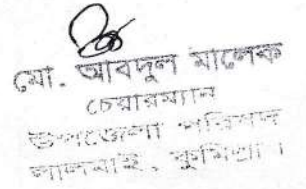 মো. আবদুল মালেক
চেয়ারম্যান
উপজেলা পরিষদ
লালমাই, কুমিল্লা ।